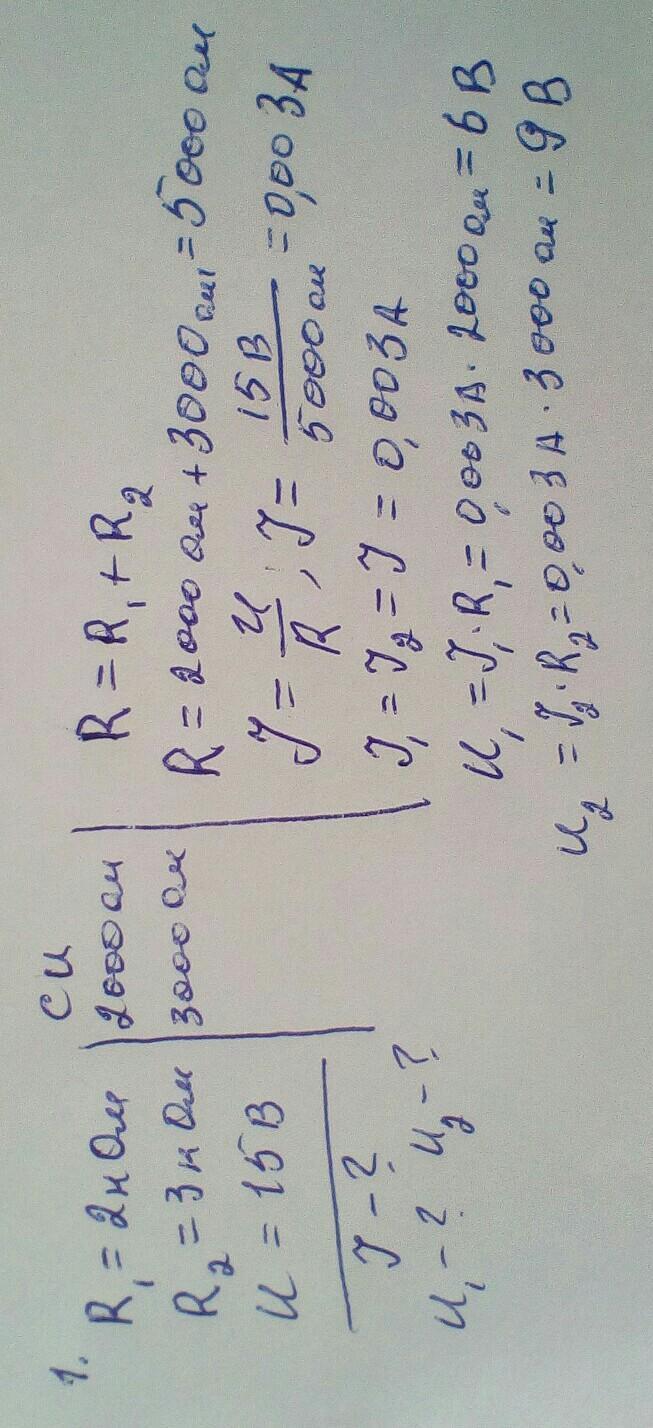 1.
R₁ = 2кОм
R₂ = 3кОм
U = 15В
I - ?
U₁ - ? U₂ - ?
СИ
2000ом
3000ом
R = R₁ + R₂
R = 2000 ом + 3000 ом = 5000 ом
I = U/R, I = 15В/5000ом = 0,003А
I₁ = I₂ = I = 0,003А
U₁ = I₁·R₁ = 0,003А·2000ом = 6В
U₂ = I₂·R₂ = 0,003А·3000ом = 9В